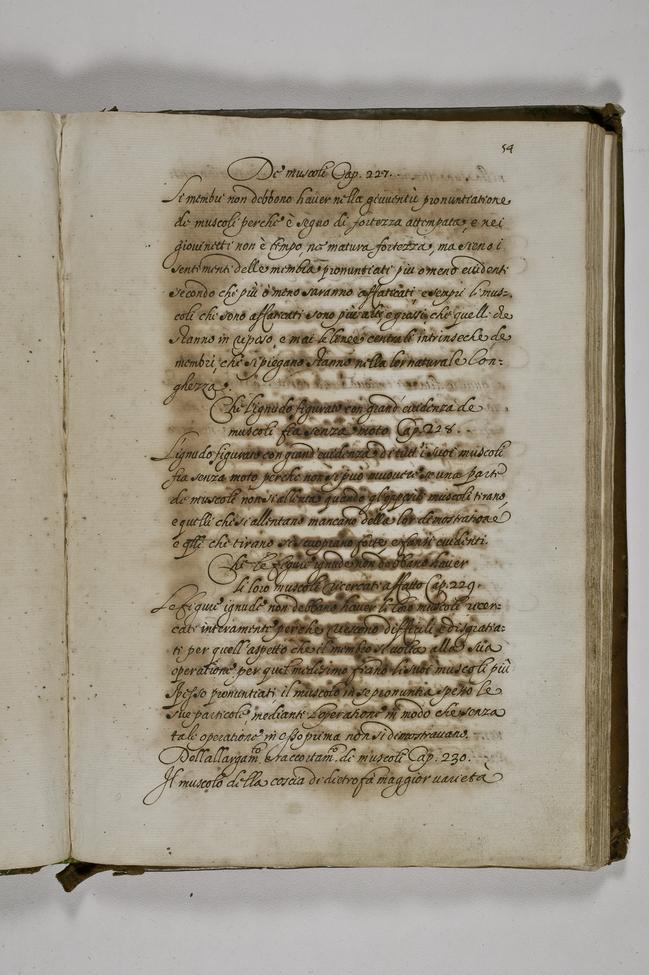 54
De' muscoli Cap. 227.
Li membri non debbono haver nella gioventù pronuntiatione
de muscoli perche è segno di fortezza attempata, e nei
giovinetti non è tempo ne matura fortezza, ma sieno i
sentimenti delle membra pronuntiati piu o meno evidenti
secondo che più o meno saranno affaticati, e sempre li mus:
coli che sono affaticati sono più alti e grossi che quelli che
stanno in riposo, e mai le linee centrali intrinseche de
membri che si piegano stanno nella lor naturale lon:
ghezza.
Che l'ignudo figurato con grand' evidenza de
muscoli fia senza moto Cap. 228.
L'ignudo figurato con grand' evidenza di tutti i suoi muscoli
fia senza moto perche non si può muovere se una parte
de muscoli non si allenta quando gl'opposti muscoli tirano,
e quelli che si allentano mancano della lor demostratione
e qlli che tirano si scuoprano forte e fansi evidenti.
Che le figure ignude non debbano haver
li loro muscoli ricercati affatto Cap. 229.
Le figure ignude non debbano haver li loro muscoli ricer:
cati interamente perche riescono difficili e disgratia:
ti per quell' aspetto che il membro si volta alla sua
operatione per quel medesimo fiano li suoi muscoli più
spesso pronuntiati, il muscolo in se pronuntia spesso le
sue particole mediante l'operatione in modo che senza
tale operatione in esso prima non si dimostravano.
Dell allargamto e raccortamto de muscoli Cap. 230.
Il muscolo della coscia di dietro fa maggior varietà